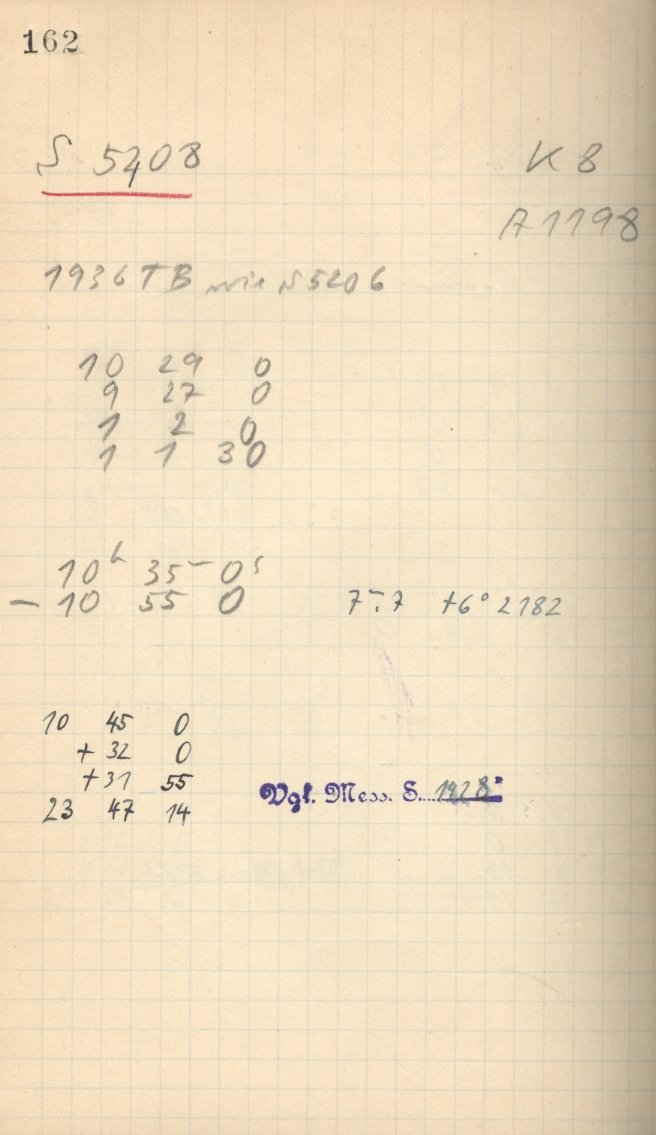 162
S 5408
K 8
A 1198
1936 TB wie S 5206
10 29 0
9 27 0
1 2 0
1 1 30
10h 35m 0s
– 10 55 0
7m.7 +6° 2182
10 45 0
+ 32 0
+ 31 55
23 47 14
Vgl. Mess. S.